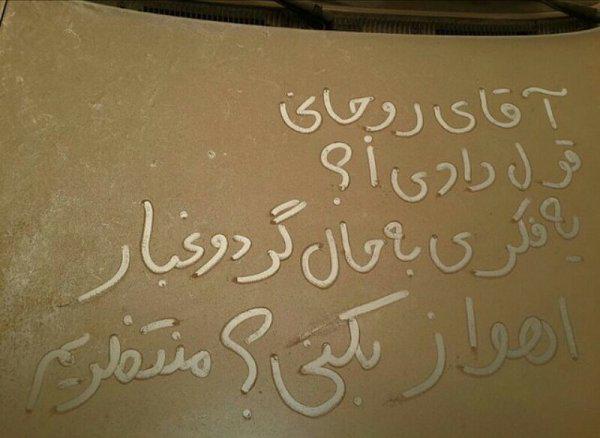 آقای روحانی
قول دادی !؟
یه فکری به حال گرد و غبار
اهواز بکنی؟ منتظریم